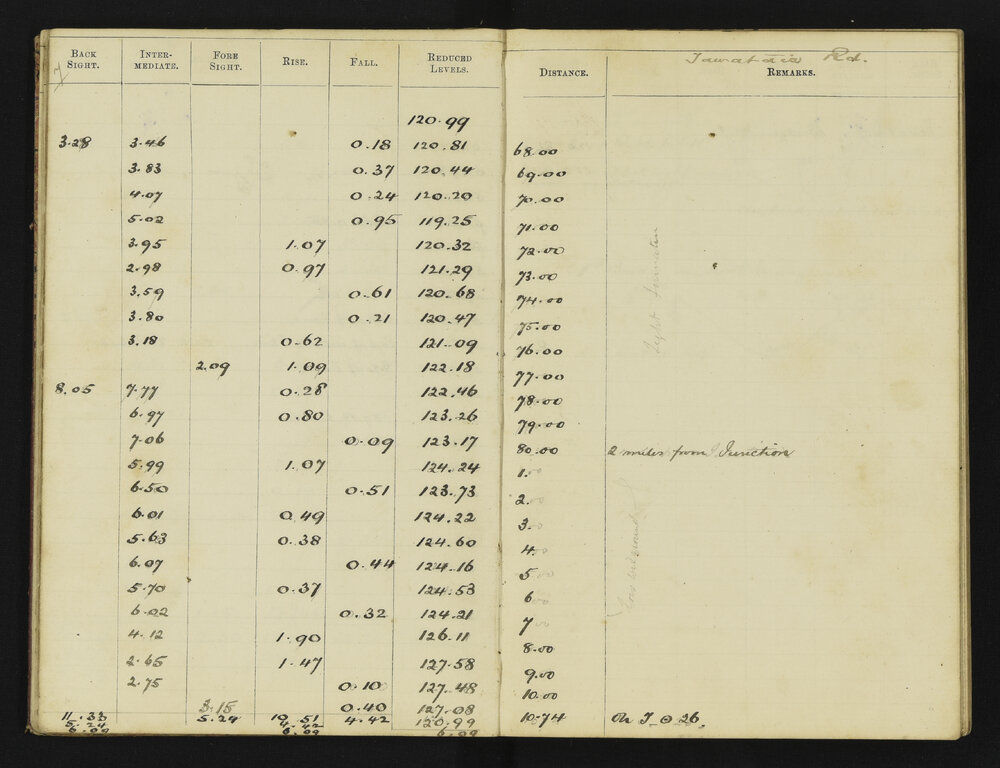 BACK SIGHT. INTER-MEDIATE. FORE SIGHT. RISE. FALL. REDUCED LEVELS.
120.99
3.28 3.46 0.18 120.81
3.83 0.37 120.44
4.07 0.24 120.20
5.02 0.95 119.25
3.95 1.07 120.32
2.98 0.97 121.29
3.59 0.61 120.68
3.80 0.21 120.47
3.18 0.62 121.09
2.09 1.09 122.18
8.05 7.77 0.28 122.46
6.97 0.80 123.26
7.06 0.09 123.17
5.99 1.07 124.24
6.50 0.51 123.73
6.01 0.49 124.22
5.63 0.38 124.60
6.07 0.44 124.16
5.70 0.37 124.53
6.02 0.32 124.21
4.12 1.90 126.11
2.65 1.47 127.58
2.75 0.10 127.48
3.15 0.40 127.08
11.33 5.24 10.51 4.42 120.99
5.24 4.42
6.09 6.09 6.09
Rd.
DISTANCE. REMARKS.
68.00
69.00
70.00
71.00
72.00
73.00
74.00
75.00
76.00
77.00
78.00
79.00
80.00 2 miles from Junction
1.00
2.00
3.00
4.00
5.00
6.00
7.00
8.00
9.00
10.00
10.74 On 26.